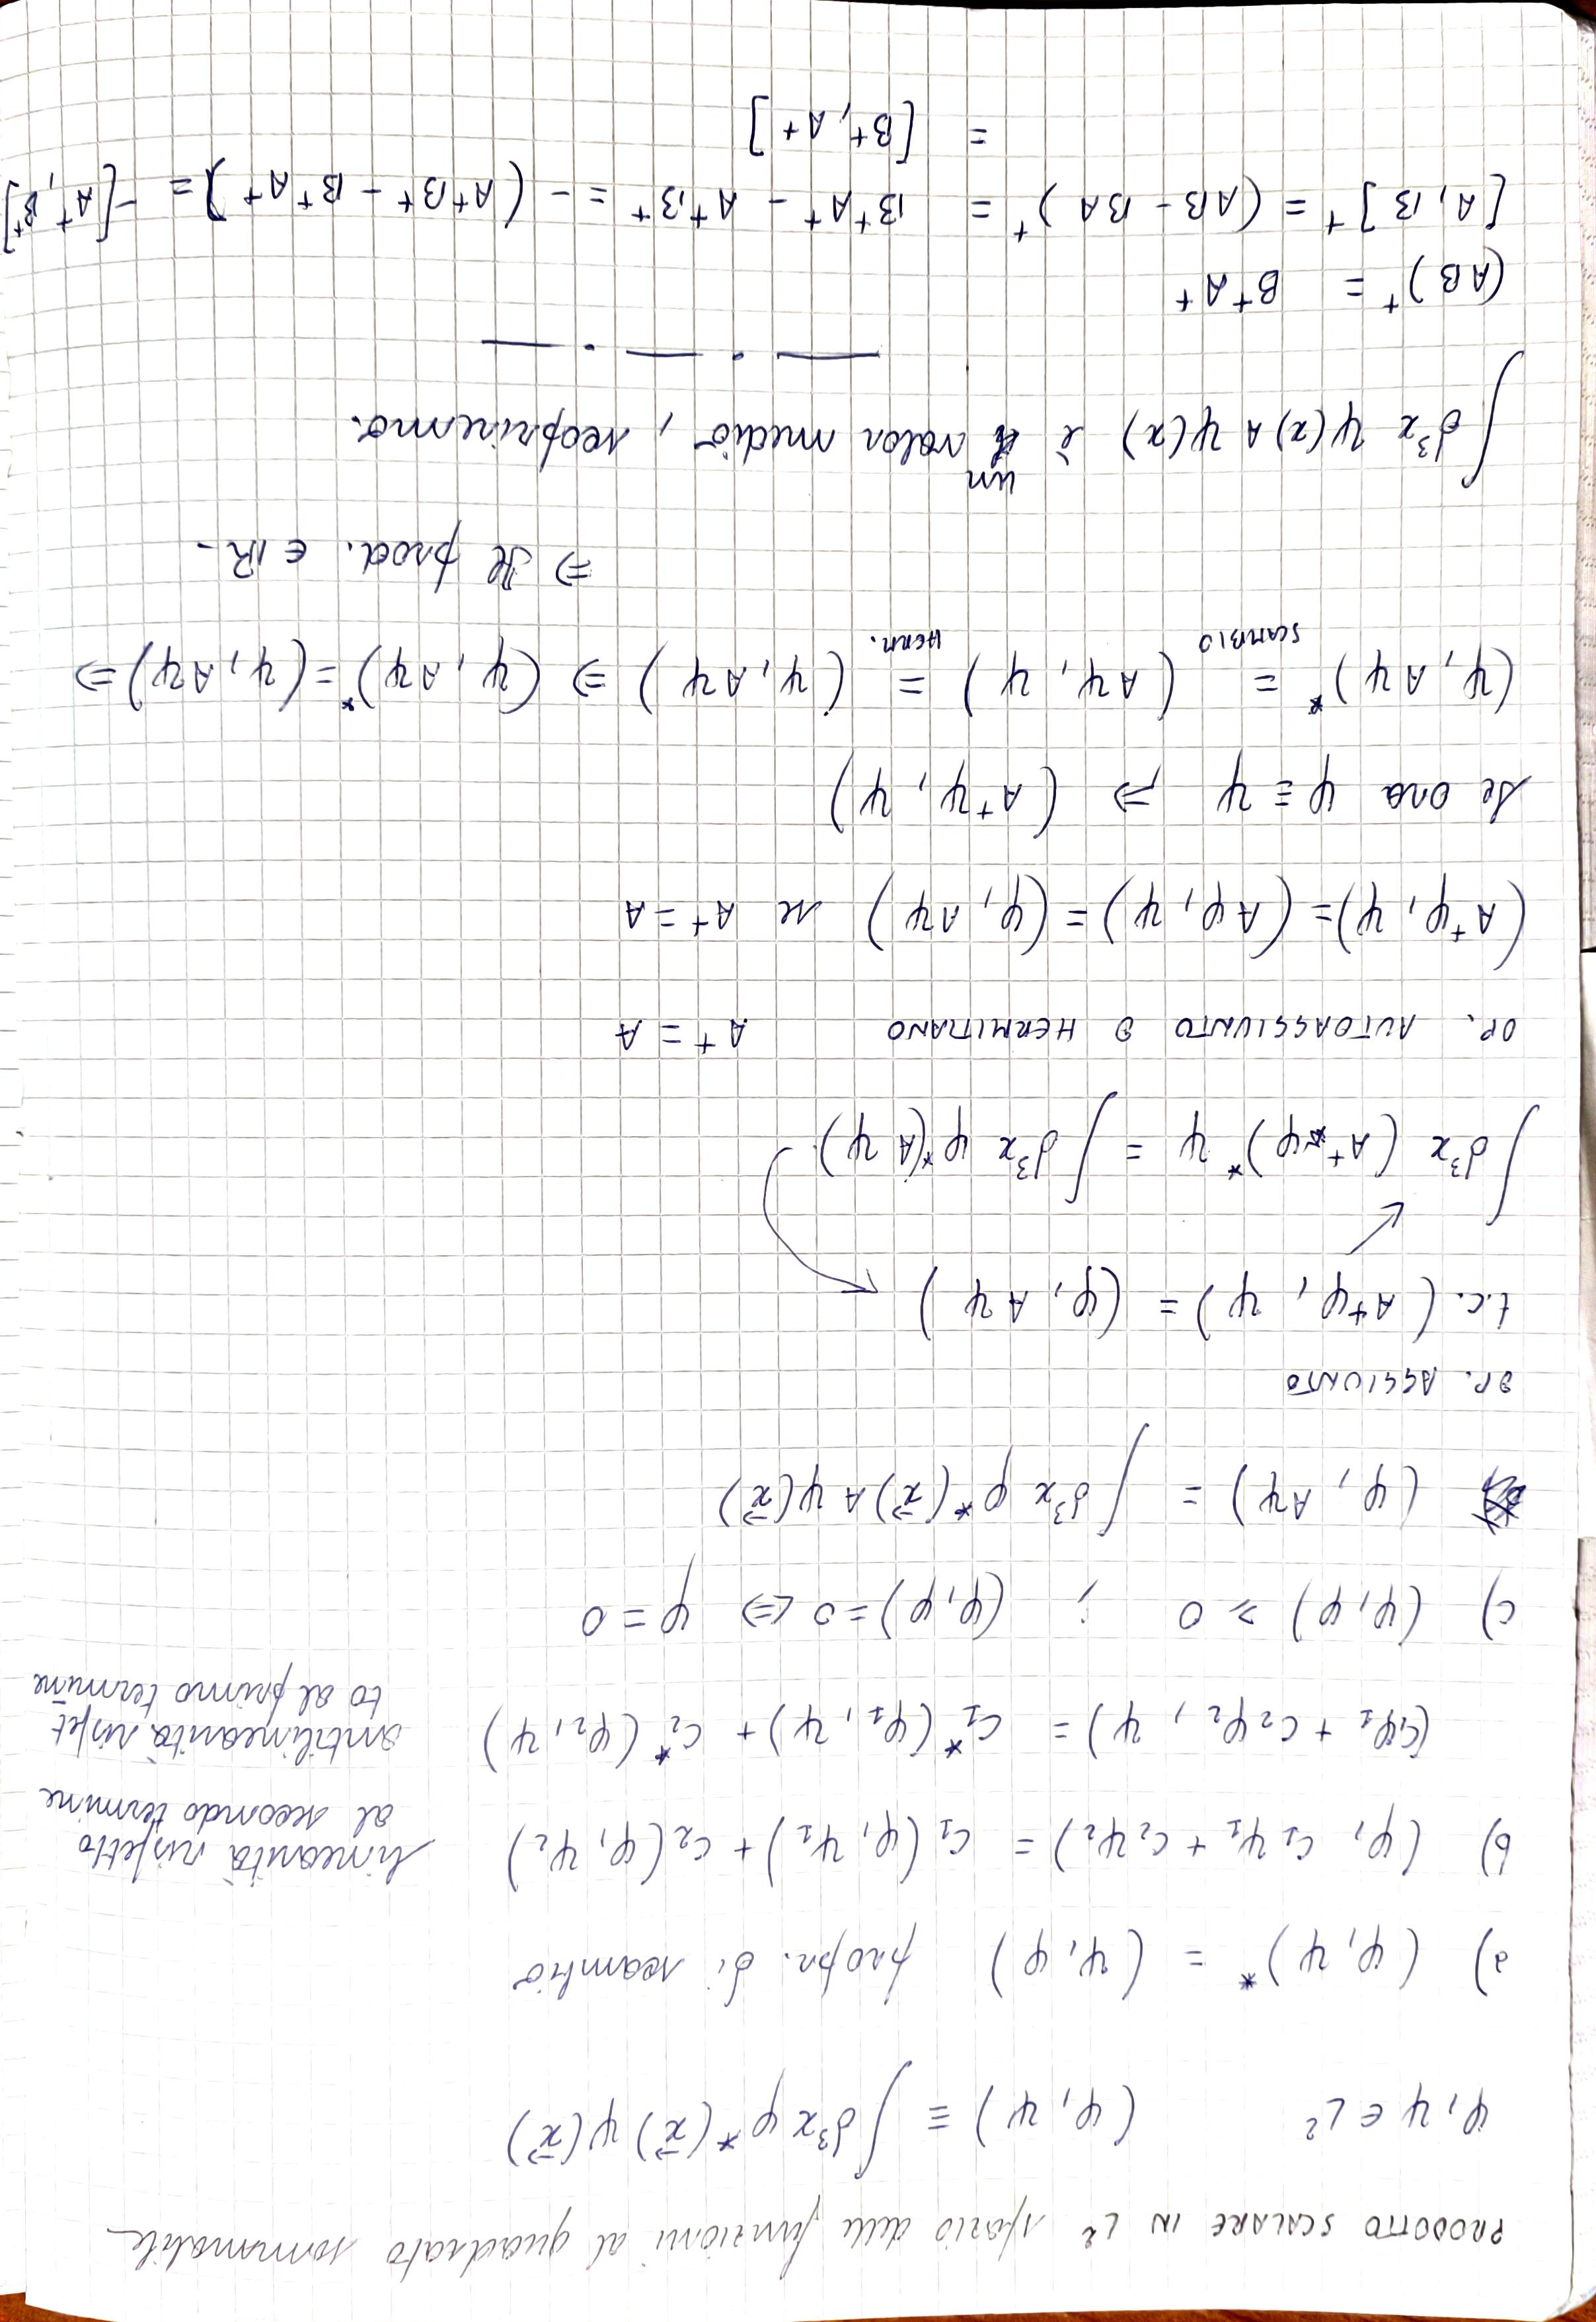 PRODOTTO SCALARE IN L² spazio delle funzioni al quadrato sommabile
φ, ψ ∈ L² (φ, ψ) ≡ ∫d³x φ*(x⃗) ψ(x⃗)
a) (φ, ψ)* = (ψ, φ) propr. di scambio
b) (φ, c₁ψ₁ + c₂ψ₂) = c₁(φ, ψ₁) + c₂(φ, ψ₂) linearità rispetto
al secondo termine
(c₁φ₁ + c₂φ₂, ψ) = c₁*(φ₁, ψ) + c₂*(φ₂, ψ) antilinearità rispet
to al primo termine
c) (φ, φ) ≥ 0 ; (φ, φ) = 0 <=> φ = 0
(φ, Aψ) = ∫d³x φ*(x⃗) A ψ(x⃗)
OP. AGGIUNTO
t.c. (A⁺φ, ψ) = (φ, Aψ)
∫d³x (A⁺φ)* ψ = ∫d³x φ*(Aψ)
OP. AUTOAGGIUNTO O HERMITIANO A⁺ = A
(A⁺φ, ψ) = (Aφ, ψ) = (φ, Aψ) se A⁺ = A
Se ora φ ≡ ψ => (A⁺ψ, ψ)
(ψ, Aψ)* = (Aψ, ψ) = (ψ, Aψ) => (ψ, Aψ)* = (ψ, Aψ) =>
SCAMBIO HERM.
=> Il prod. ∈ ℝ.
∫d³x ψ(x) A ψ(x) è un valor medio, scopriremo.
— . — . —
(AB)⁺ = B⁺A⁺
[A, B]⁺ = (AB - BA)⁺ = B⁺A⁺ - A⁺B⁺ = - (A⁺B⁺ - B⁺A⁺) = -[A⁺, B⁺]
= [B⁺, A⁺]